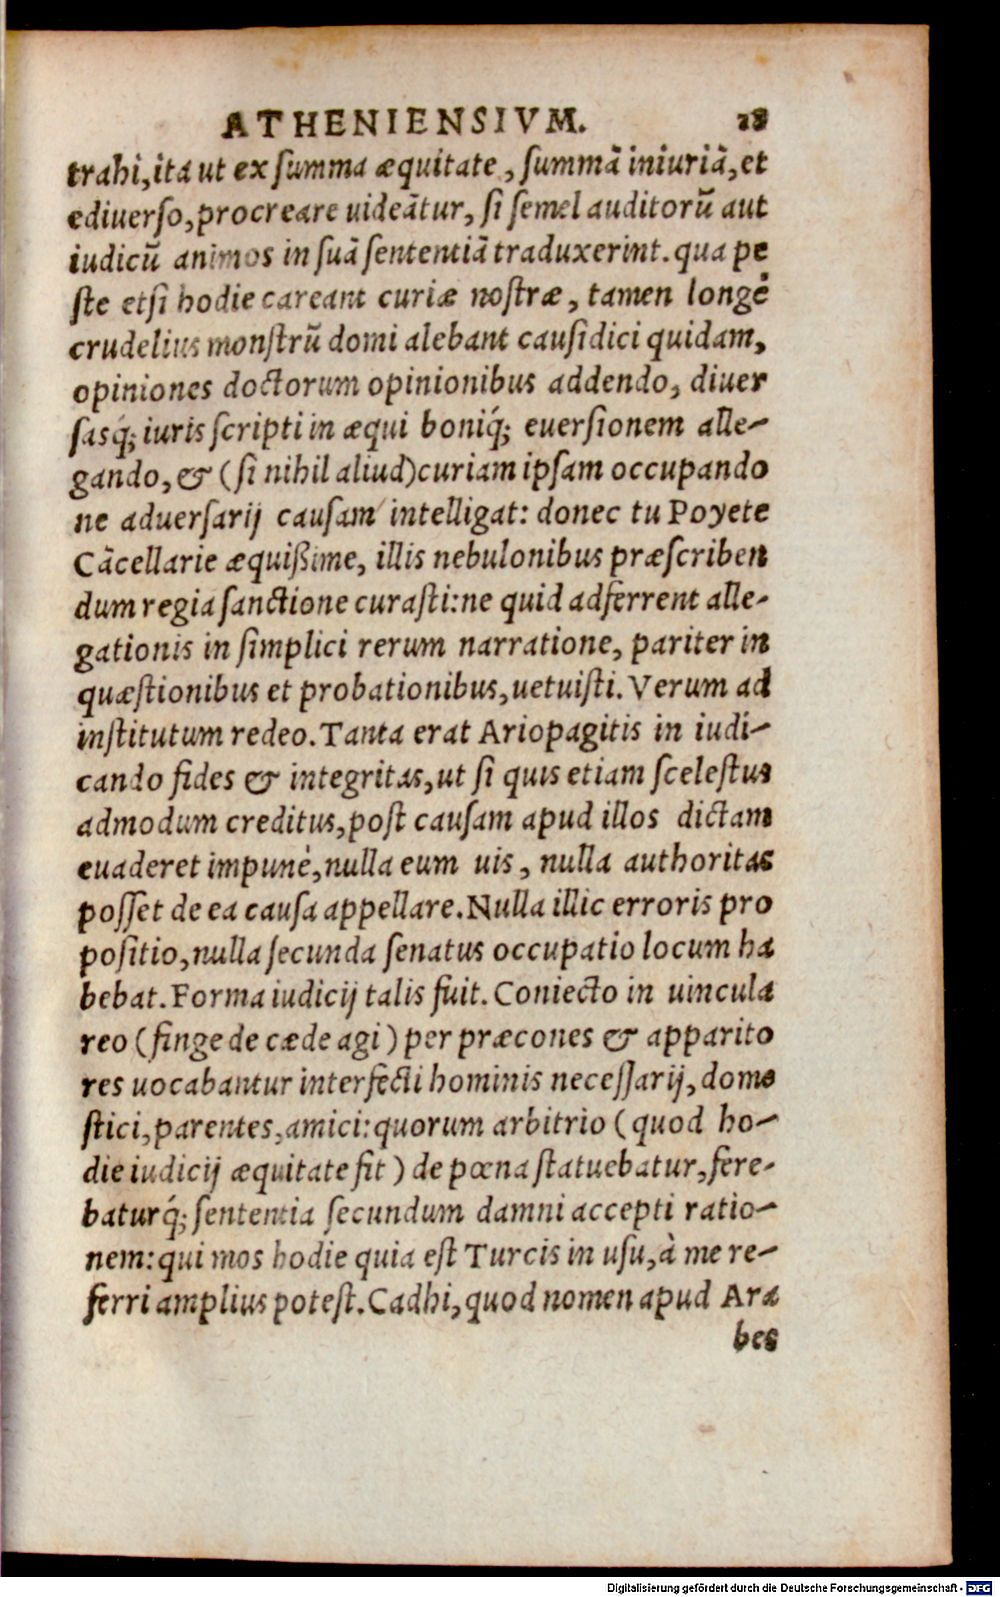 ATHENIENSIVM. 28
trahi, ita ut ex ſumma æquitate, ſummā iniuriā, et
ediuerſo, procreare uideātur, ſi ſemel auditorū aut
iudicū animos in ſuā ſententiā traduxerint. qua pe
ſte etſi hodie careant curiæ noſtræ, tamen longè
crudelius monſtrū domi alebant cauſidici quidam,
opiniones doctorum opinionibus addendo, diuer
ſasq́; iuris ſcripti in æqui boniq́; euerſionem alle-
gando, & (ſi nihil aliud) curiam ipſam occupando
ne aduerſarij cauſam intelligat: donec tu Poyete
Cācellarie æquißime, illis nebulonibus præſcriben
dum regia ſanctione curaſti: ne quid adferrent alle-
gationis in ſimplici rerum narratione, pariter in
quæſtionibus et probationibus, uetuiſti. Verum ad
inſtitutum redeo. Tanta erat Ariopagitis in iudi-
cando fides & integritas, ut ſi quis etiam sceleſtus
admodum creditus, poſt cauſam apud illos dictam
euaderet impunè, nulla eum uis, nulla authoritas
poſſet de ea cauſa appellare. Nulla illic erroris pro
poſitio, nulla ſecunda ſenatus occupatio locum ha
bebat. Forma iudicij talis fuit. Coniecto in uincula
reo (finge de cæde agi) per præcones & apparito
res uocabantur interfecti hominis neceſſarij, dome
ſtici, parentes, amici: quorum arbitrio (quod ho-
die iudicij æquitate fit) de pœna ſtatuebatur, fere-
baturq́; ſententia ſecundum damni accepti ratio-
nem: qui mos hodie quia eſt Turcis in uſu, à me re-
ferri amplius poteſt. Cadhi, quod nomen apud Ara
bes
Digitalisierung gefördert durch die Deutsche Forschungsgemeinschaft - DFG